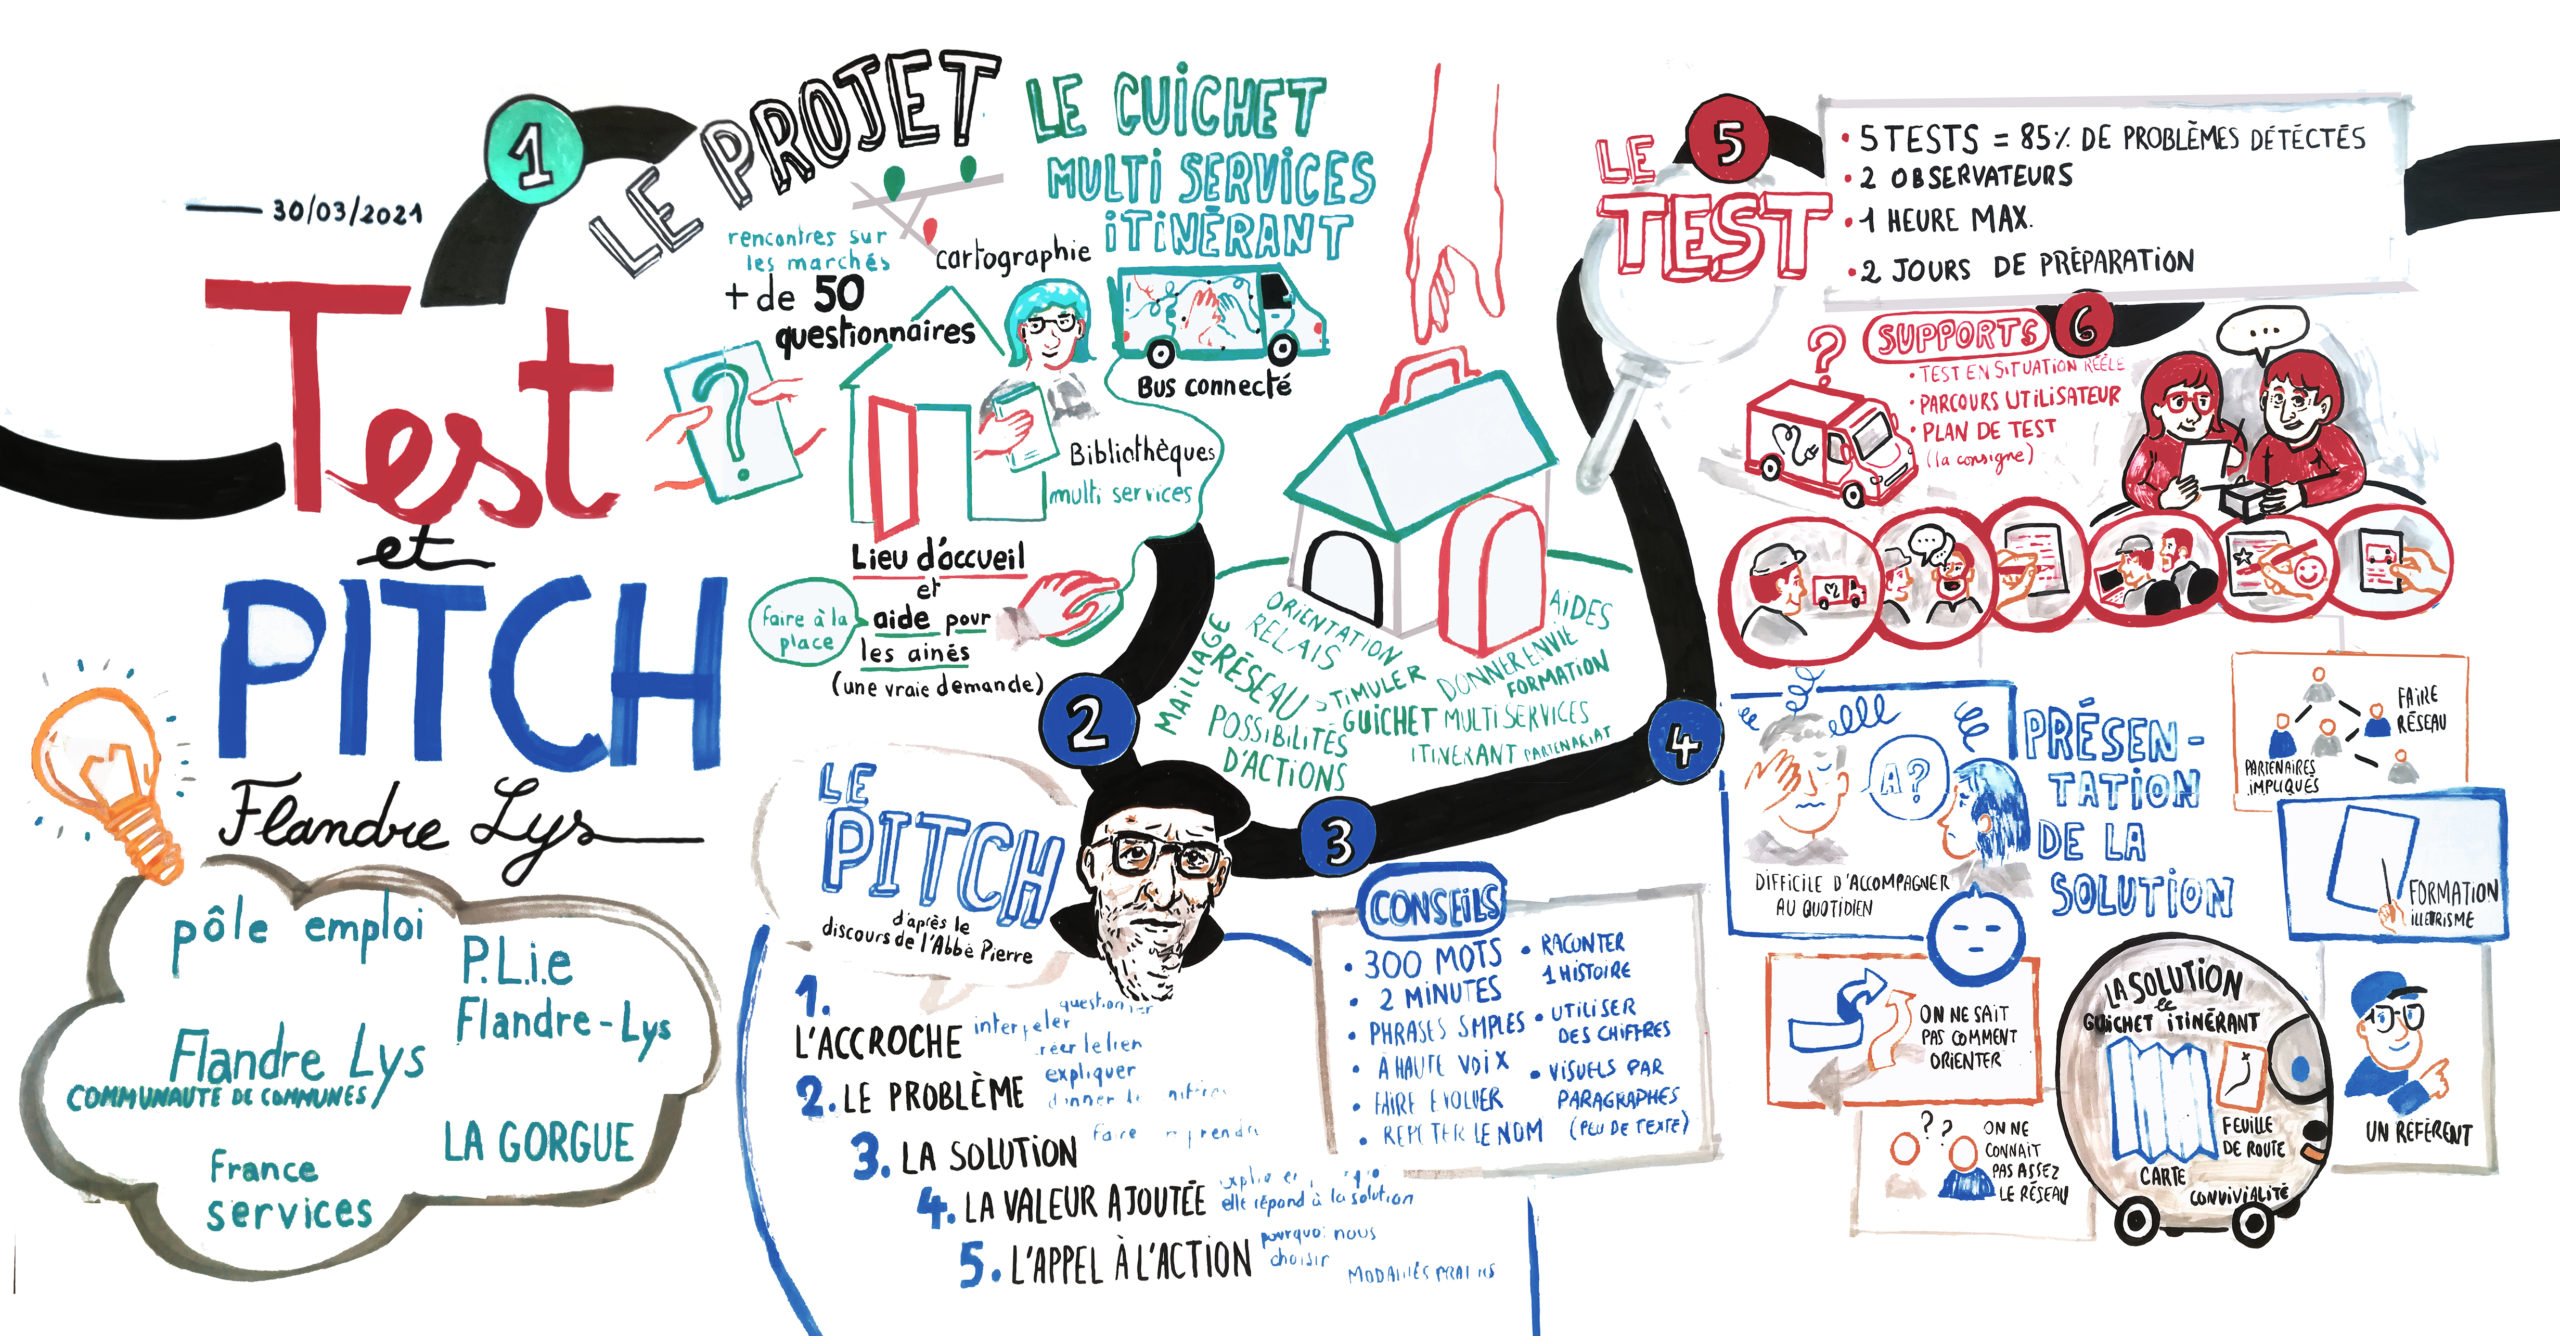 30/03/2021
Test
et
PITCH
Flandre Lys
pôle emploi
P.L.i.e
Flandre-Lys
Flandre Lys
COMMUNAUTÉ DE COMMUNES
LA GORGUE
France
services
1
LE PROJET
LE GUICHET
MULTI SERVICES
iTiNÉRANT
rencontres sur
les marchés
+ de 50
questionnaires
cartographie
?
Bus connecté
Bibliothèques
multi services
Lieu d'accueil
et
aide pour
les ainés
(une vraie demande)
faire à la
place
MAILLAGE
ORIENTATION
RELAIS
RÉSEAU
STIMULER
POSSIBILITÉS
D'ACTIONS
AIDES
DONNER ENVIE
FORMATION
GUICHET MULTI SERVICES
ITINÉRANT PARTENARIAT
2
LE
PITCH
d'après le
discours de l'Abbé Pierre
1.
L'ACCROCHE
interpeler
expliquer
2. LE PROBLÈME
3. LA SOLUTION
faire
4. LA VALEUR AJOUTÉE
elle répond à la solution
5. L'APPEL À L'ACTION
pourquoi nous
choisir
3
CONSEILS
• 300 MOTS
• 2 MINUTES
• PHRASES SMPLES
• À HAUTE VOIX
• FAIRE EVOLUER
• LE NOM
• RACONTER
1 HISTOIRE
• UTILISER
DES CHIFFRES
• VISUELS PAR
PARAGRAPHES
(PEU DE TEXTE)
4
PRÉSEN-
TATION
DE LA
SOLUTION
A?
DIFFICILE D'ACCOMPAGNER
AU QUOTIDIEN
ON NE SAIT
PAS COMMENT
ORIENTER
??
ON NE
CONNAIT
PAS ASSEZ
LE RÉSEAU
LA SOLUTION
le
GUICHET ITINÉRANT
CARTE
FEUILLE
DE ROUTE
CONVIVIALITÉ
FAIRE
RÉSEAU
PARTENAIRES
IMPLIQUÉS
FORMATION
UN RÉFÉRENT
5
LE
TEST
• 5 TESTS = 85% DE PROBLÈMES DÉTÉCTÉS
• 2 OBSERVATEURS
• 1 HEURE MAX.
• 2 JOURS DE PRÉPARATION
6
SUPPORTS
?
• TEST EN SITUATION RÉÈLE
• PARCOURS UTILISATEUR
• PLAN DE TEST
(la consigne)
...